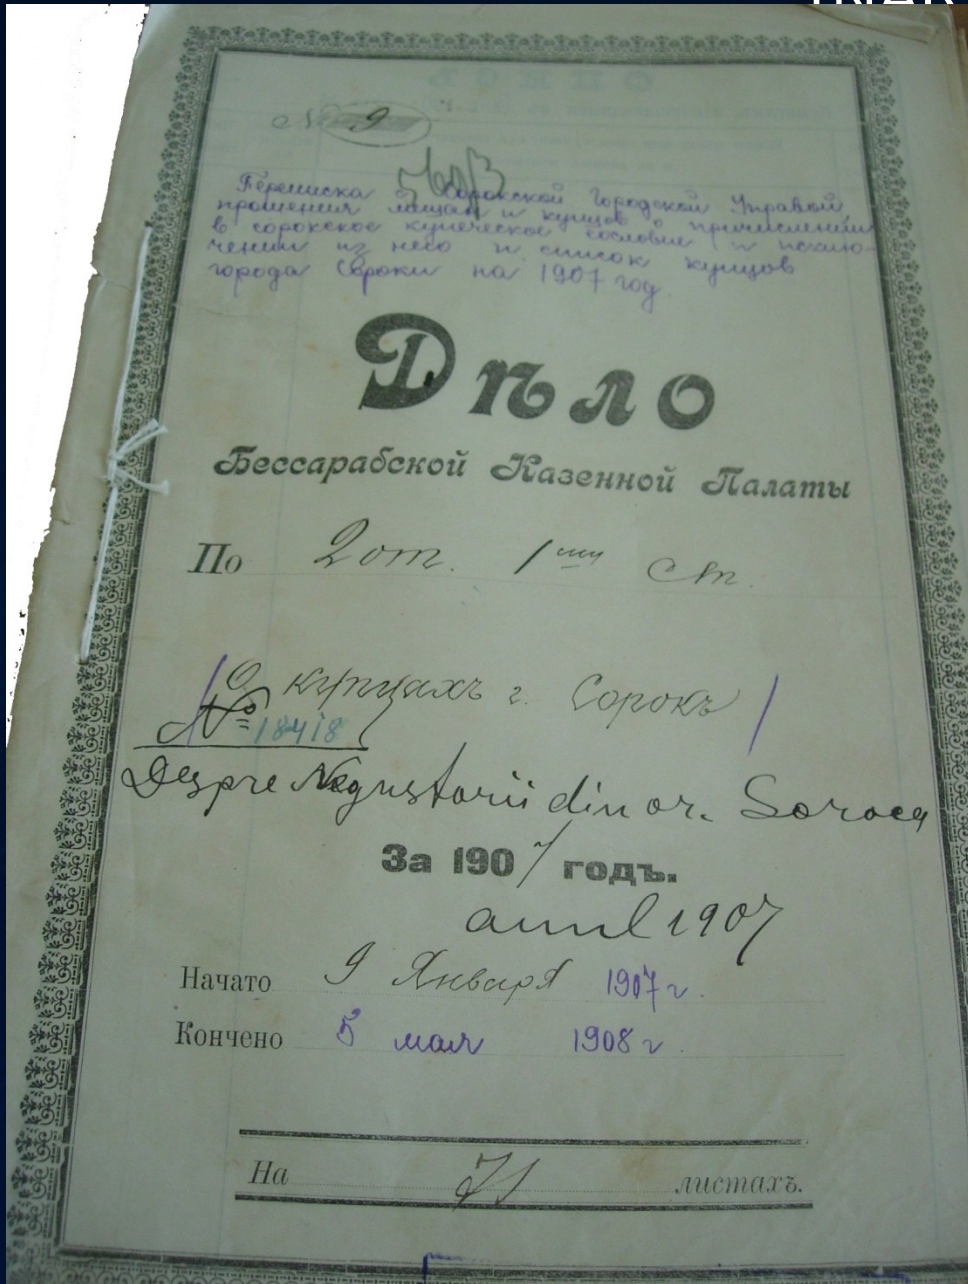 № 9
Переписка с Сорокской Городской Управой,
прошения мещан и купцов о причислении
в сорокское купеческое сословие и исклю-
чении из него и список купцов
города Сороки на 1907 год.
Дѣло
Бессарабской Казенной Палаты
По 2 от. 1 ст.
О купцахъ г. Сорокъ
№ 18418
Despre Negustorii din or. Soroca
За 1907 годъ.
anul 1907
Начато 9 Января 1907 г.
Кончено 5 мая 1908 г.
На 71 листахъ.